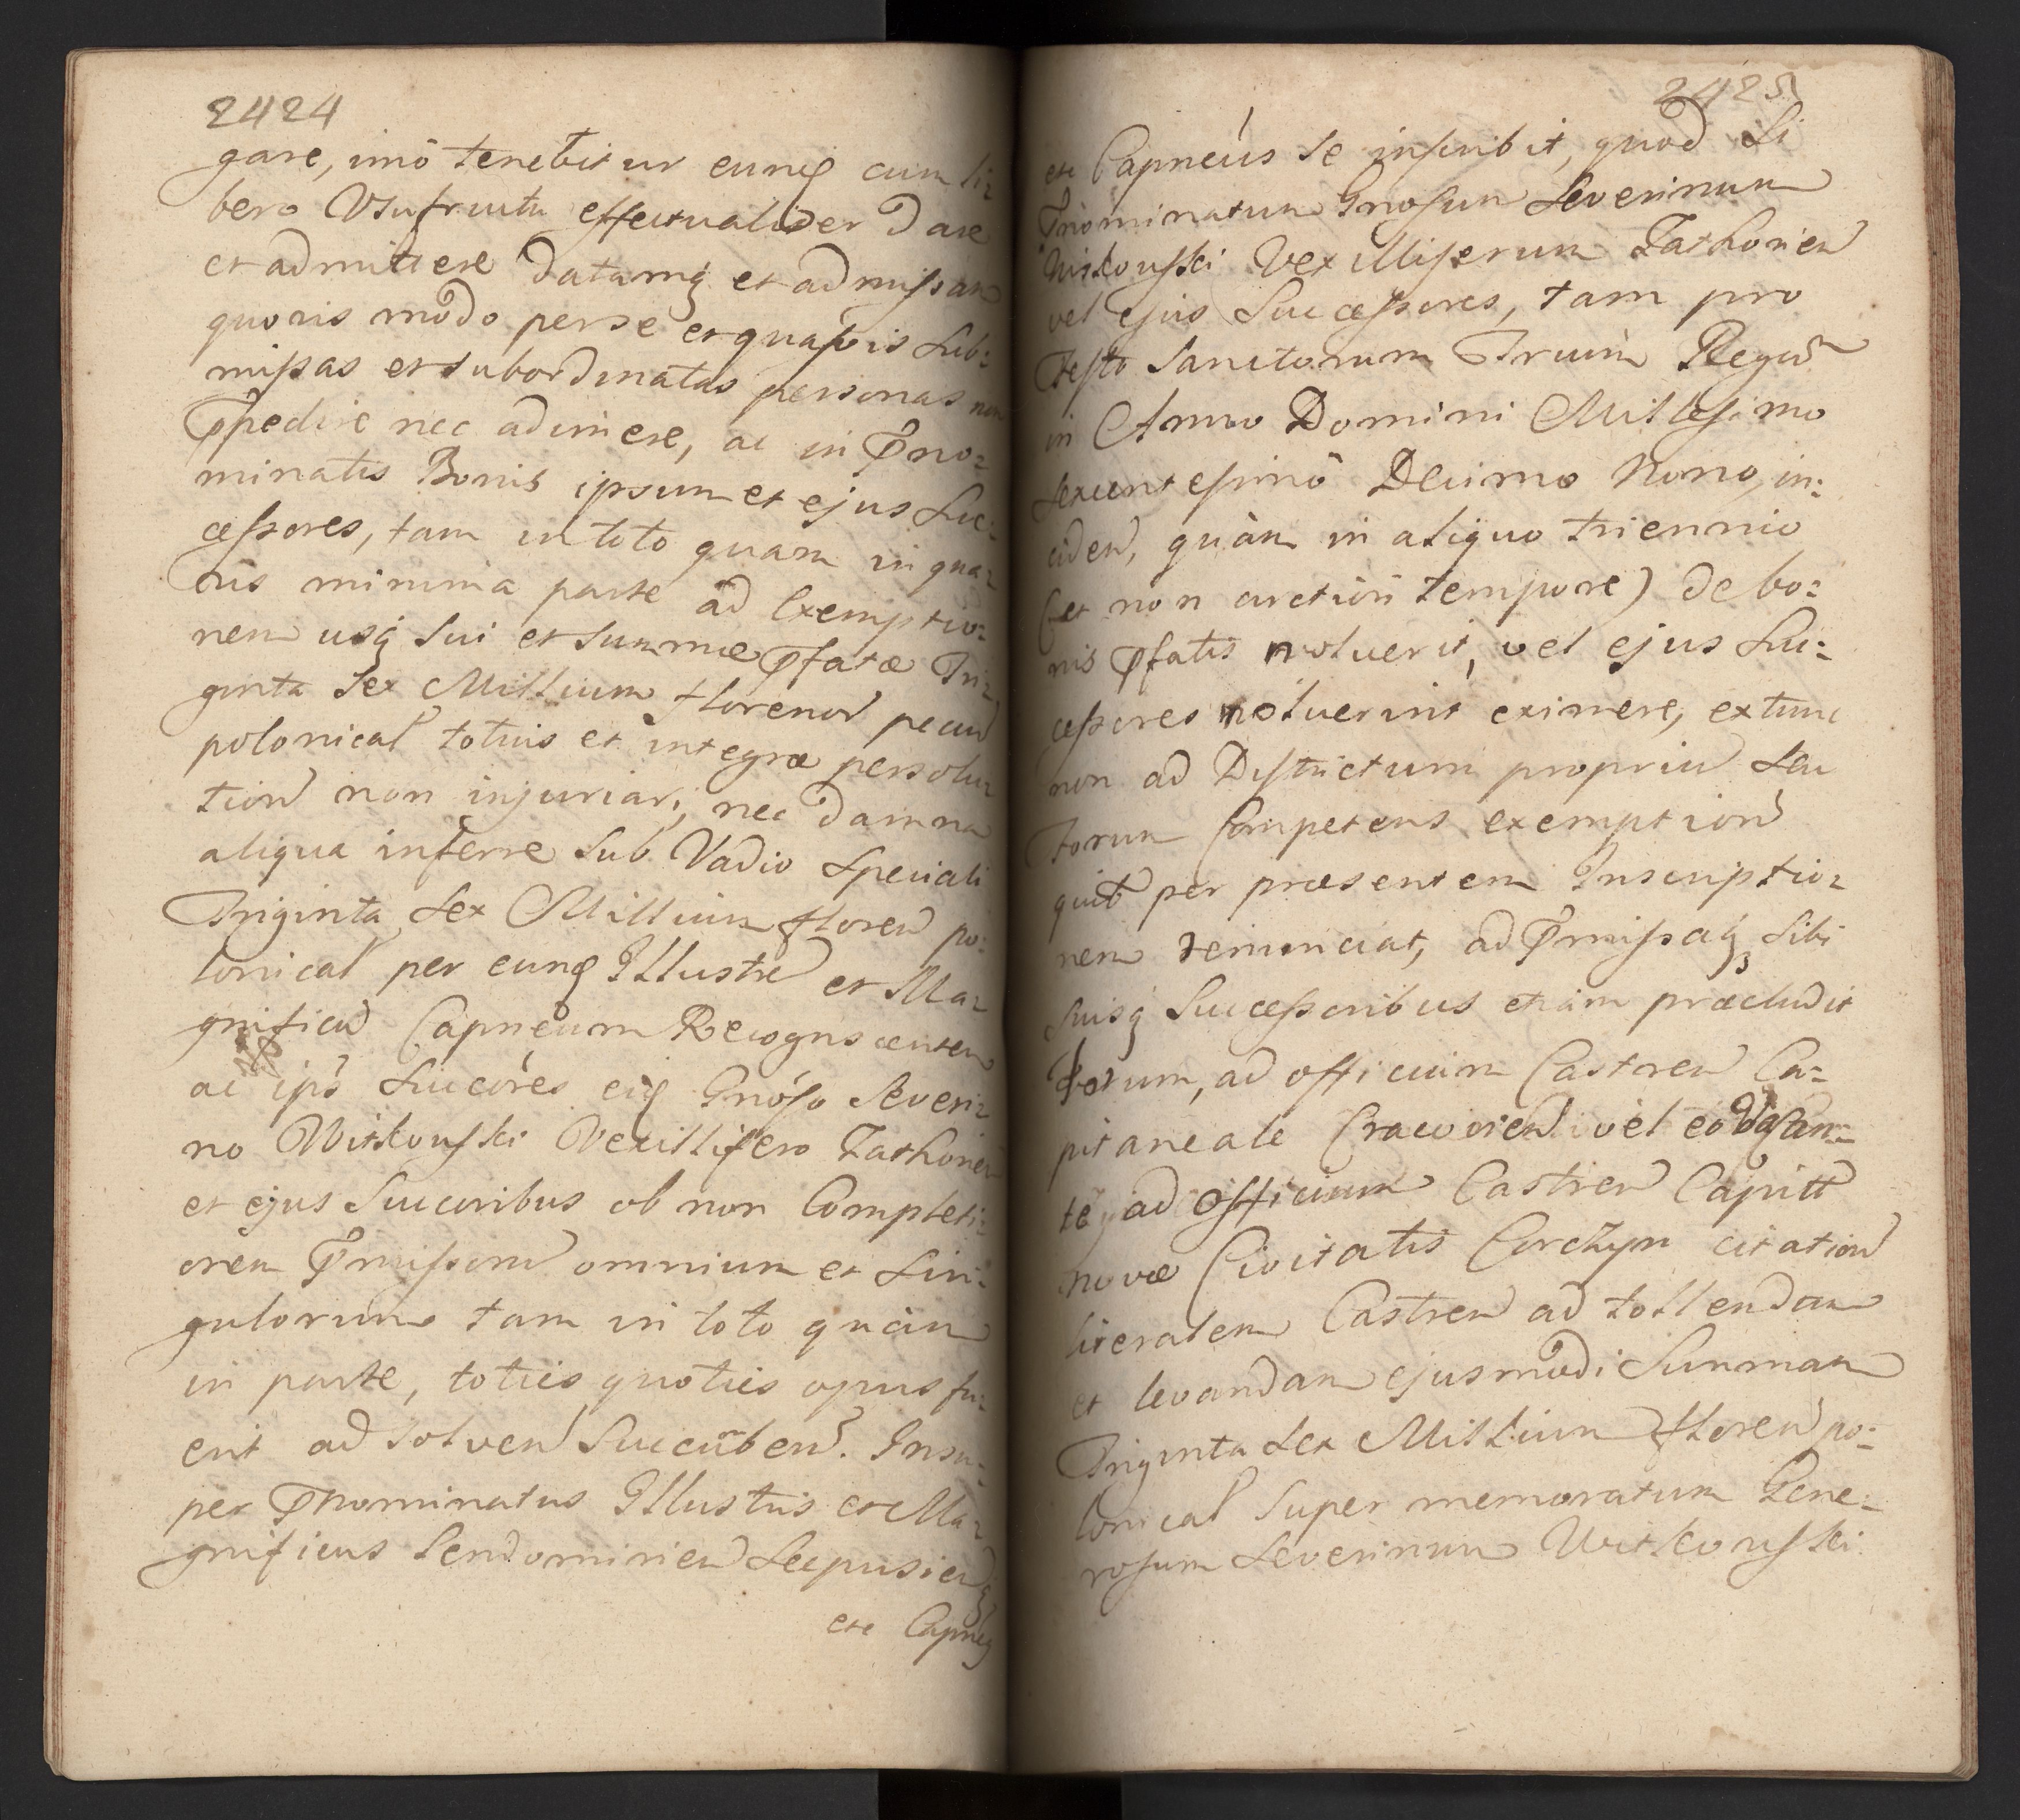 2424
gare, imò tenebitur eunq cum li:
bero Vsufructu effectualider Dare
et admittere datamq et admissam
quovis modo per se et quasvis sub:
missas et subordinatas personas non
Ppedire nec adimere, ac in Pno:
minatis Bonis ipsum et ejus Suc:
cessores, tam in toto quam in qua:
vis minima parte ad Exemptio:
nem usq sui et summæ Pfatæ Tri:
ginta Sex Millium floreno pecun
polonical totius et integræ persolu:
tion non injuriari, nec damna
aliqua inferre sub Vadio Speciali
Triginta Sex Millium floren po:
lonical per eunq Illustre et Ma:
gnificu Capneum Recognscenten
ac ips Succores eiq Gnoso Severi:
no Witkouski Vexillifero Zathorien
et ejus Succoribus ob non Completi:
onem Pmissoru omnium et Sin:
gulorum tam in toto quàm
in parte, toties quoties opus fu:
erit ad solven Succüben. Insu:
per Pnominatus Illustris et Ma:
gnificus Sendomirien Scepusien
etc Capneq
2425
etc Capneús se inscribit, quod Si
Pnominatum Gnosum Severinum
Witkouski Vexilliferum Zathorien
vel ejus Successores, tam pro
Festo Sanctorum Trium Regu
in Anno Domini Millesimo
sexcentesimo Decimo Nono, in:
ciden, quàm in aliquo triennio
(et non arctiori tempore) de bo:
nis Pfatis noluerit, vel ejus Suc:
cessores noluerint eximere, extunc
non ad Districtum propriu Seu
Forum Competens exemption
quib per præsentem Inscriptio:
nem renunciat, ad Pmissaq sibi
suisq Successoribus etiàm præcludit
Forum, ad officium Castren Ca:
pitaneale Cracovien vel eo Vacan:
te, ad officium Castren Capitt
novæ Civitatis Corczyn citation
literalem Castren ad tollendam
et levandam ejusmodi Summam
Triginta Sex Millium floren po:
lonical Super memoratum Gene:
rosum Severinum Witkouski